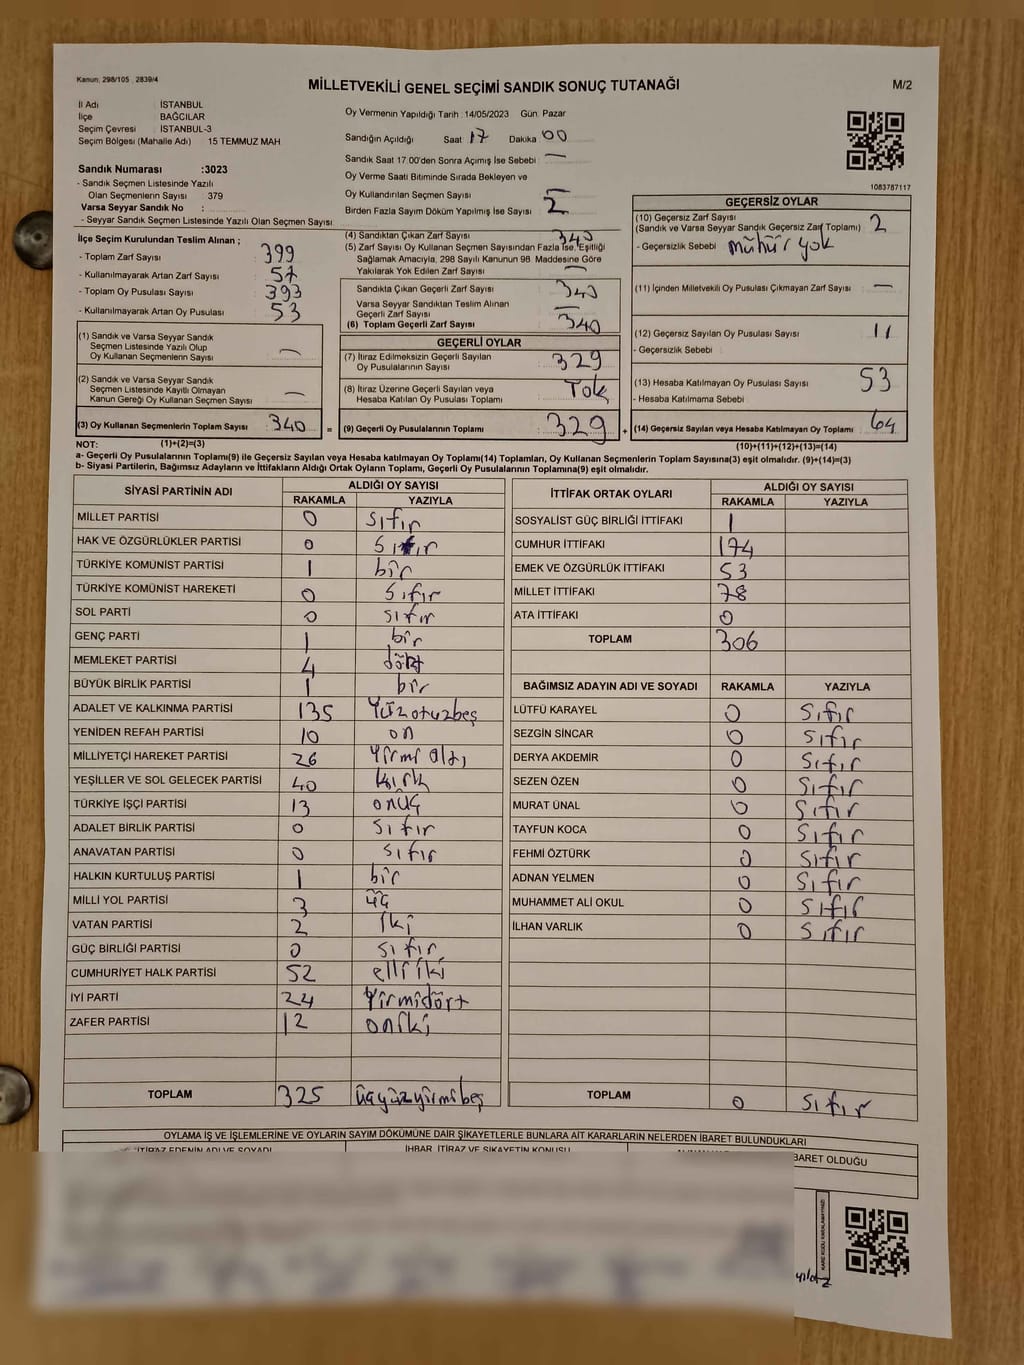 Kanun; 298/105 2839/4
MİLLETVEKİLİ GENEL SEÇİMİ SANDIK SONUÇ TUTANAĞI
M/2
İl Adı : İSTANBUL
İlçe : BAĞCILAR
Seçim Çevresi : İSTANBUL-3
Seçim Bölgesi (Mahalle Adı) : 15 TEMMUZ MAH
Sandık Numarası :3023
- Sandık Seçmen Listesinde Yazılı
Olan Seçmenlerin Sayısı : 379
Varsa Seyyar Sandık No :
- Seyyar Sandık Seçmen Listesinde Yazılı Olan Seçmen Sayısı :
Oy Vermenin Yapıldığı Tarih : 14/05/2023 Gün: Pazar
Sandığın Açıldığı Saat 17 Dakika 00
Sandık Saat 17:00'den Sonra Açımış İse Sebebi : —
Oy Verme Saati Bitiminde Sırada Bekleyen ve
Oy Kullandırılan Seçmen Sayısı : —
Birden Fazla Sayım Döküm Yapılmış İse Sayısı : 2
1083787117
İlçe Seçim Kurulundan Teslim Alınan ;
- Toplam Zarf Sayısı : 399
- Kullanılmayarak Artan Zarf Sayısı : 57
- Toplam Oy Pusulası Sayısı : 393
- Kullanılmayarak Artan Oy Pusulası : 53
(1) Sandık ve Varsa Seyyar Sandık
Seçmen Listesinde Yazılı Olup
Oy Kullanan Seçmenlerin Sayısı : —
(2) Sandık ve Varsa Seyyar Sandık
Seçmen Listesinde Kayıtlı Olmayan
Kanun Gereği Oy Kullanan Seçmen Sayısı : —
(3) Oy Kullanan Seçmenlerin Toplam Sayısı : 340 =
(4) Sandıktan Çıkan Zarf Sayısı : 342
(5) Zarf Sayısı Oy Kullanan Seçmen Sayısından Fazla İse, Eşitliği
Sağlamak Amacıyla, 298 Sayılı Kanunun 98. Maddesine Göre
Yakılarak Yok Edilen Zarf Sayısı : —
Sandıkta Çıkan Geçerli Zarf Sayısı : 340
Varsa Seyyar Sandıktan Teslim Alınan
Geçerli Zarf Sayısı : —
(6) Toplam Geçerli Zarf Sayısı : 340
GEÇERLİ OYLAR
(7) İtiraz Edilmeksizin Geçerli Sayılan
Oy Pusulalarının Sayısı : 329
(8) İtiraz Üzerine Geçerli Sayılan veya
Hesaba Katılan Oy Pusulası Toplamı : Yok
(9) Geçerli Oy Pusulalarının Toplamı : 329 +
GEÇERSİZ OYLAR
(10) Geçersiz Zarf Sayısı
(Sandık ve Varsa Seyyar Sandık Geçersiz Zarf Toplamı) : 2
- Geçersizlik Sebebi : mühür yok
(11) İçinden Milletvekili Oy Pusulası Çıkmayan Zarf Sayısı : —
(12) Geçersiz Sayılan Oy Pusulası Sayısı : 11
- Geçersizlik Sebebi :
(13) Hesaba Katılmayan Oy Pusulası Sayısı : 53
- Hesaba Katılmama Sebebi :
(14) Geçersiz Sayılan veya Hesaba Katılmayan Oy Toplamı : 64
NOT: (1)+(2)=(3)
(10)+(11)+(12)+(13)=(14)
a- Geçerli Oy Pusulalarının Toplamı(9) ile Geçersiz Sayılan veya Hesaba katılmayan Oy Toplamı(14) Toplamları, Oy Kullanan Seçmenlerin Toplam Sayısına(3) eşit olmalıdır. (9)+(14)=(3)
b- Siyasi Partilerin, Bağımsız Adayların ve İttifakların Aldığı Ortak Oyların Toplamı, Geçerli Oy Pusulalarının Toplamına(9) eşit olmalıdır.
SİYASİ PARTİNİN ADI ALDIĞI OY SAYISI
RAKAMLA YAZIYLA
MİLLET PARTİSİ 0 sıfır
HAK VE ÖZGÜRLÜKLER PARTİSİ 0 sıfır
TÜRKİYE KOMÜNİST PARTİSİ 1 bir
TÜRKİYE KOMÜNİST HAREKETİ 0 sıfır
SOL PARTİ 0 sıfır
GENÇ PARTİ 1 bir
MEMLEKET PARTİSİ 4 dört
BÜYÜK BİRLİK PARTİSİ 1 bir
ADALET VE KALKINMA PARTİSİ 135 Yüzotuzbeş
YENİDEN REFAH PARTİSİ 10 on
MİLLİYETÇİ HAREKET PARTİSİ 26 Yirmi altı
YEŞİLLER VE SOL GELECEK PARTİSİ 40 kırk
TÜRKİYE İŞÇİ PARTİSİ 13 onüç
ADALET BİRLİK PARTİSİ 0 sıfır
ANAVATAN PARTİSİ 0 sıfır
HALKIN KURTULUŞ PARTİSİ 1 bir
MİLLİ YOL PARTİSİ 3 üç
VATAN PARTİSİ 2 İki
GÜÇ BİRLİĞİ PARTİSİ 0 sıfır
CUMHURİYET HALK PARTİSİ 52 elliiki
İYİ PARTİ 24 Yirmidört
ZAFER PARTİSİ 12 oniki
TOPLAM 325 üçyüzyirmibeş
İTTİFAK ORTAK OYLARI ALDIĞI OY SAYISI
RAKAMLA YAZIYLA
SOSYALİST GÜÇ BİRLİĞİ İTTİFAKI 1
CUMHUR İTTİFAKI 174
EMEK VE ÖZGÜRLÜK İTTİFAKI 53
MİLLET İTTİFAKI 78
ATA İTTİFAKI 0
TOPLAM 306
BAĞIMSIZ ADAYIN ADI VE SOYADI RAKAMLA YAZIYLA
LÜTFÜ KARAYEL 0 sıfır
SEZGİN SİNCAR 0 sıfır
DERYA AKDEMİR 0 sıfır
SEZEN ÖZEN 0 sıfır
MURAT ÜNAL 0 sıfır
TAYFUN KOCA 0 sıfır
FEHMİ ÖZTÜRK 0 sıfır
ADNAN YELMEN 0 sıfır
MUHAMMET ALİ OKUL 0 sıfır
İLHAN VARLIK 0 sıfır
TOPLAM 0 sıfır
OYLAMA İŞ VE İŞLEMLERİNE VE OYLARIN SAYIM DÖKÜMÜNE DAİR ŞİKAYETLERLE BUNLARA AİT KARARLARIN NELERDEN İBARET BULUNDUKLARI
İTİRAZ EDENİN ADI VE SOYADI İHBAR, İTİRAZ VE ŞİKAYETİN KONUSU
BARET OLDUĞU
KARE KODU KARALAMAYINIZ!